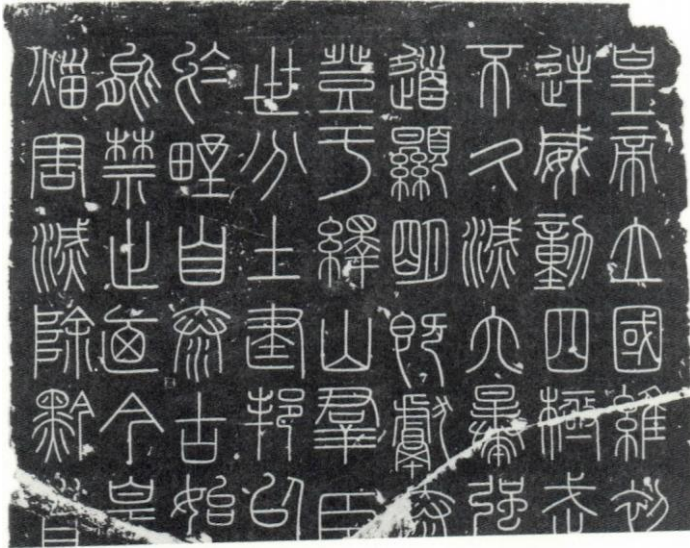 皇帝立國維初
逆威動四極武
不久滅六暴強
道顯明既獻泰
登于繹山群臣
世分土建邦以
於野自泰古始
能禁止迺今皇
災害滅除黔首